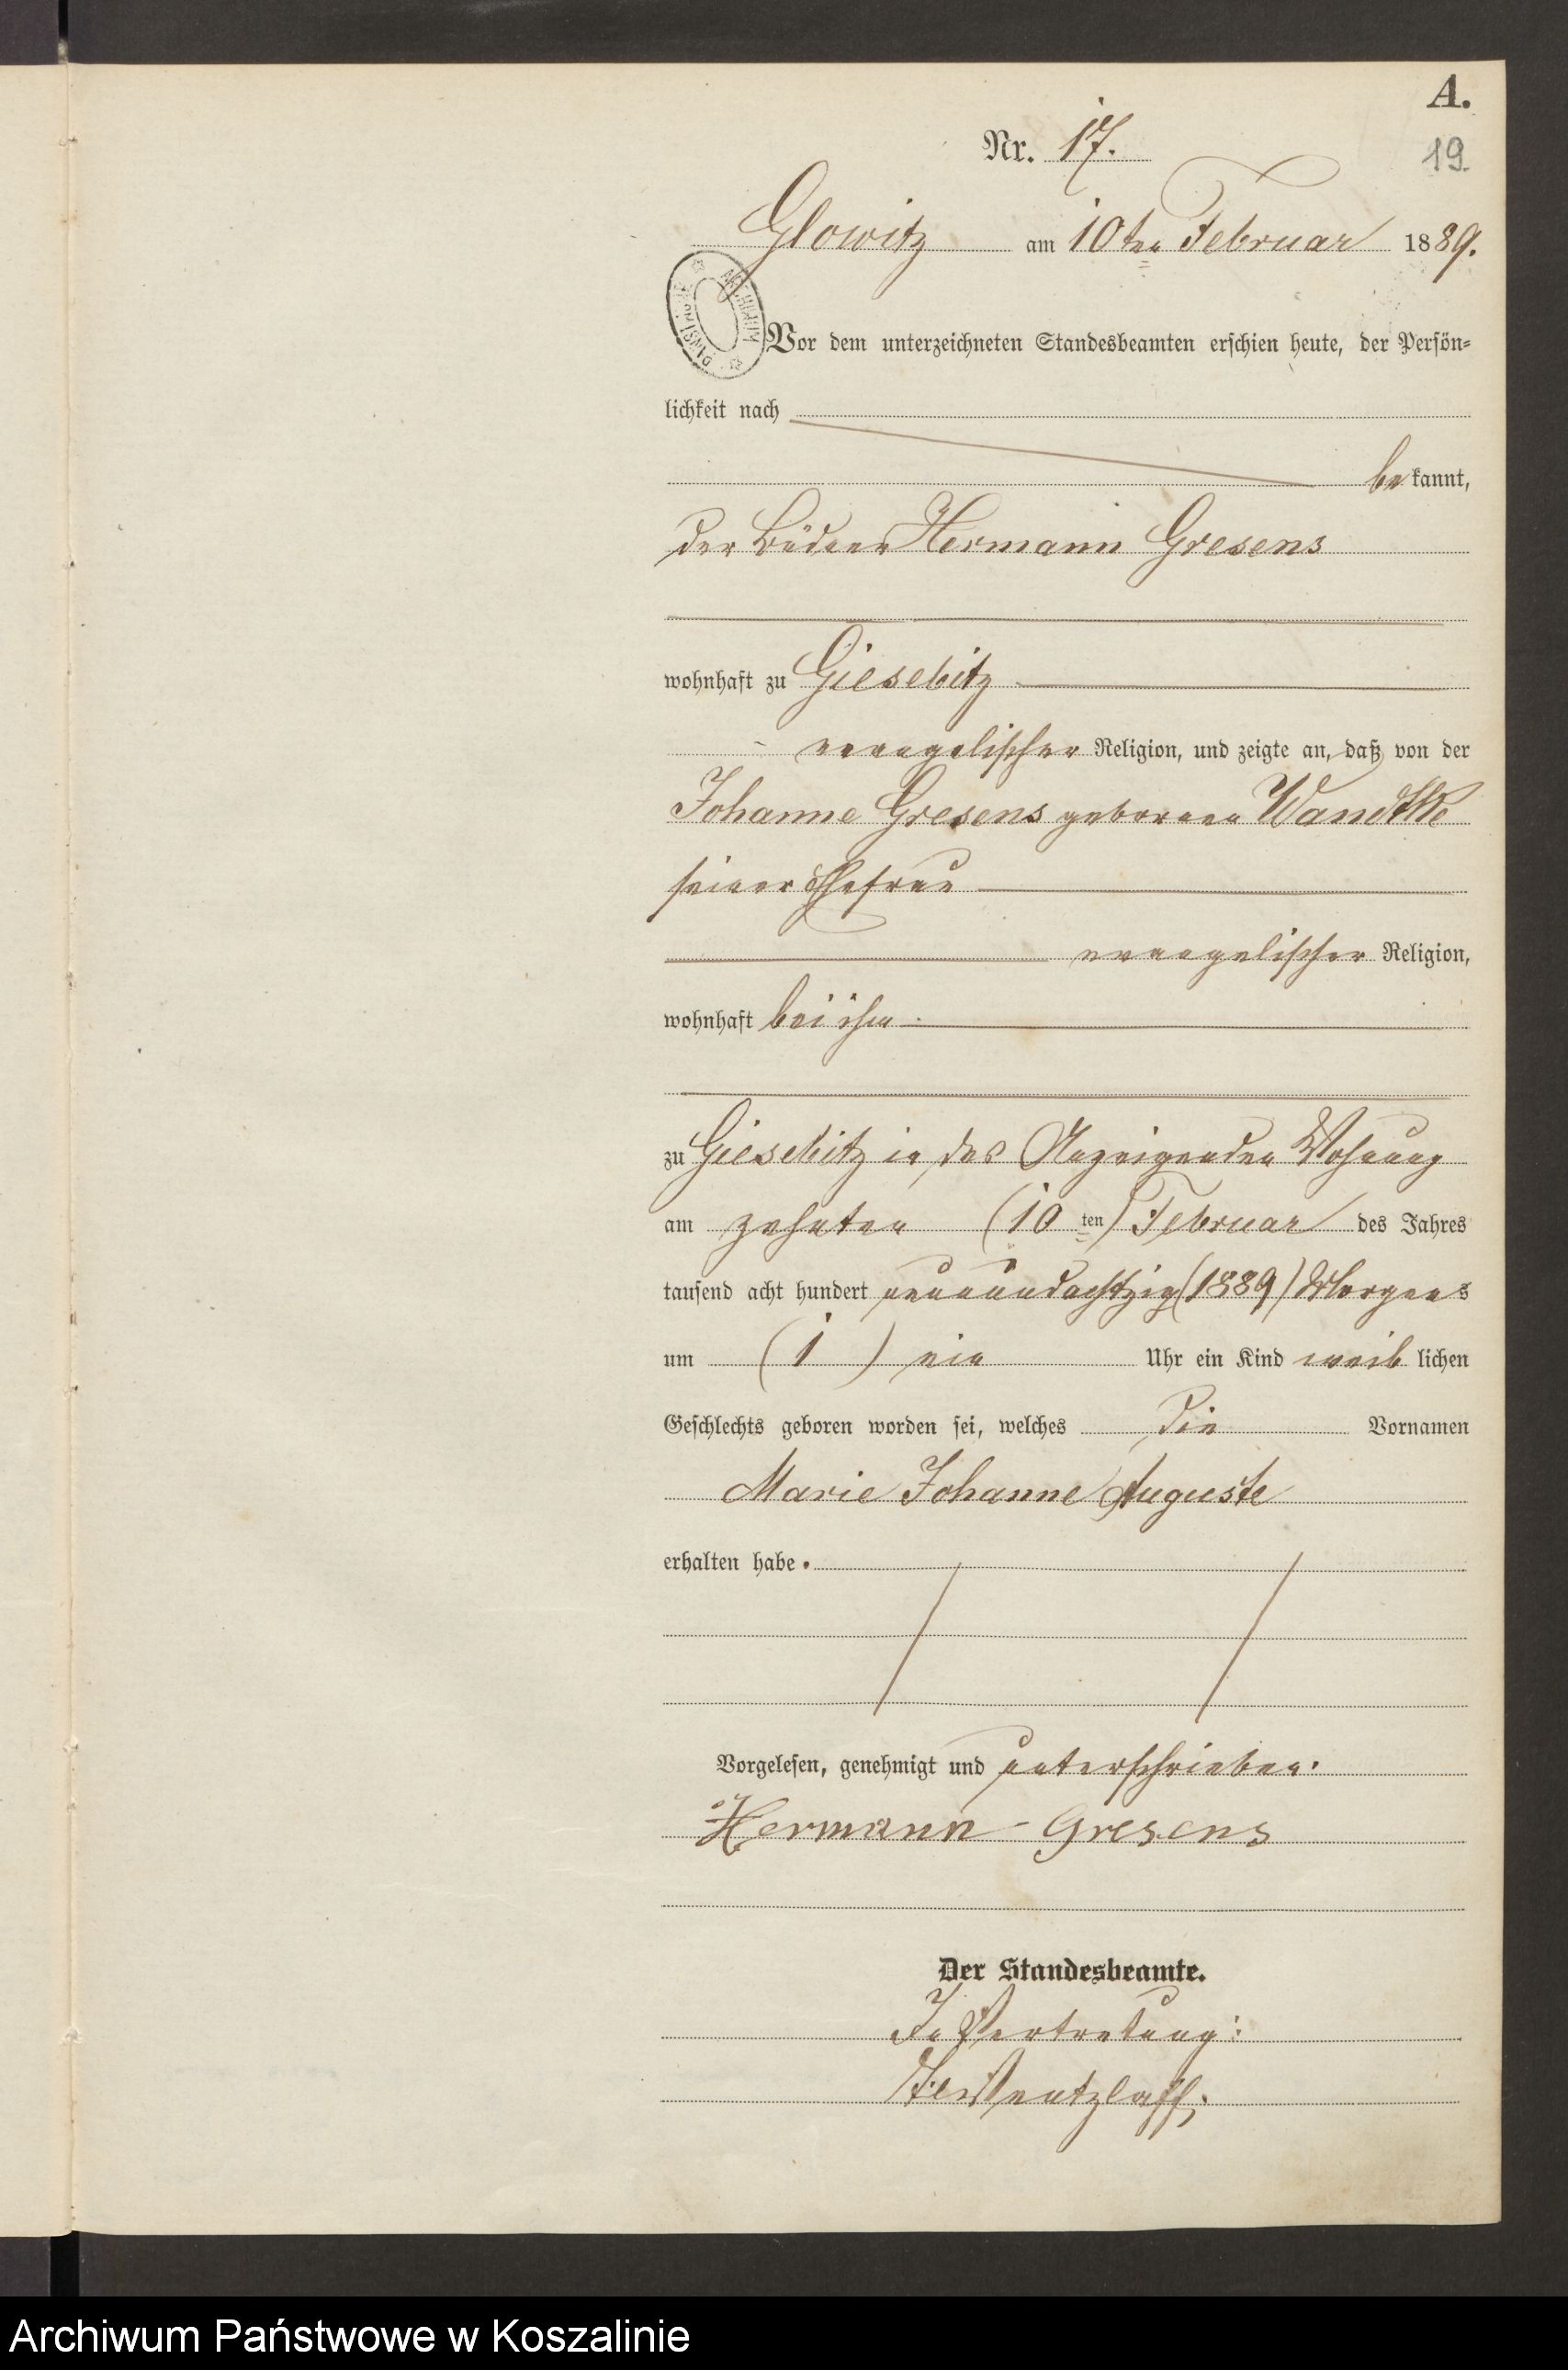 A.
Nr. 17.
19.
Glowitz am 10ten Februar 1889.
Vor dem unterzeichneten Standesbeamten erschien heute, der Persön-
lichkeit nach
bekannt,
der Büdner Hermann Gresens
wohnhaft zu Giesebitz
evangelischer Religion, und zeigte an, daß von der
Johanne Gresens geborenen Wandtke
seiner Ehefrau
evangelischer Religion,
wohnhaft bei ihm
zu Giesebitz in des Anzeigenden Wohnung
am zehnten (10ten) Februar des Jahres
tausend acht hundert neunundachtzig (1889) Morgens
um (1) ein Uhr ein Kind weiblichen
Geschlechts geboren worden sei, welches die Vornamen
Marie Johanne Auguste
erhalten habe.
Vorgelesen, genehmigt und unterschrieben.
Hermann Gresens
Der Standesbeamte.
In Vertretung:
Wentzlaff.
Archiwum Państwowe w Koszalinie